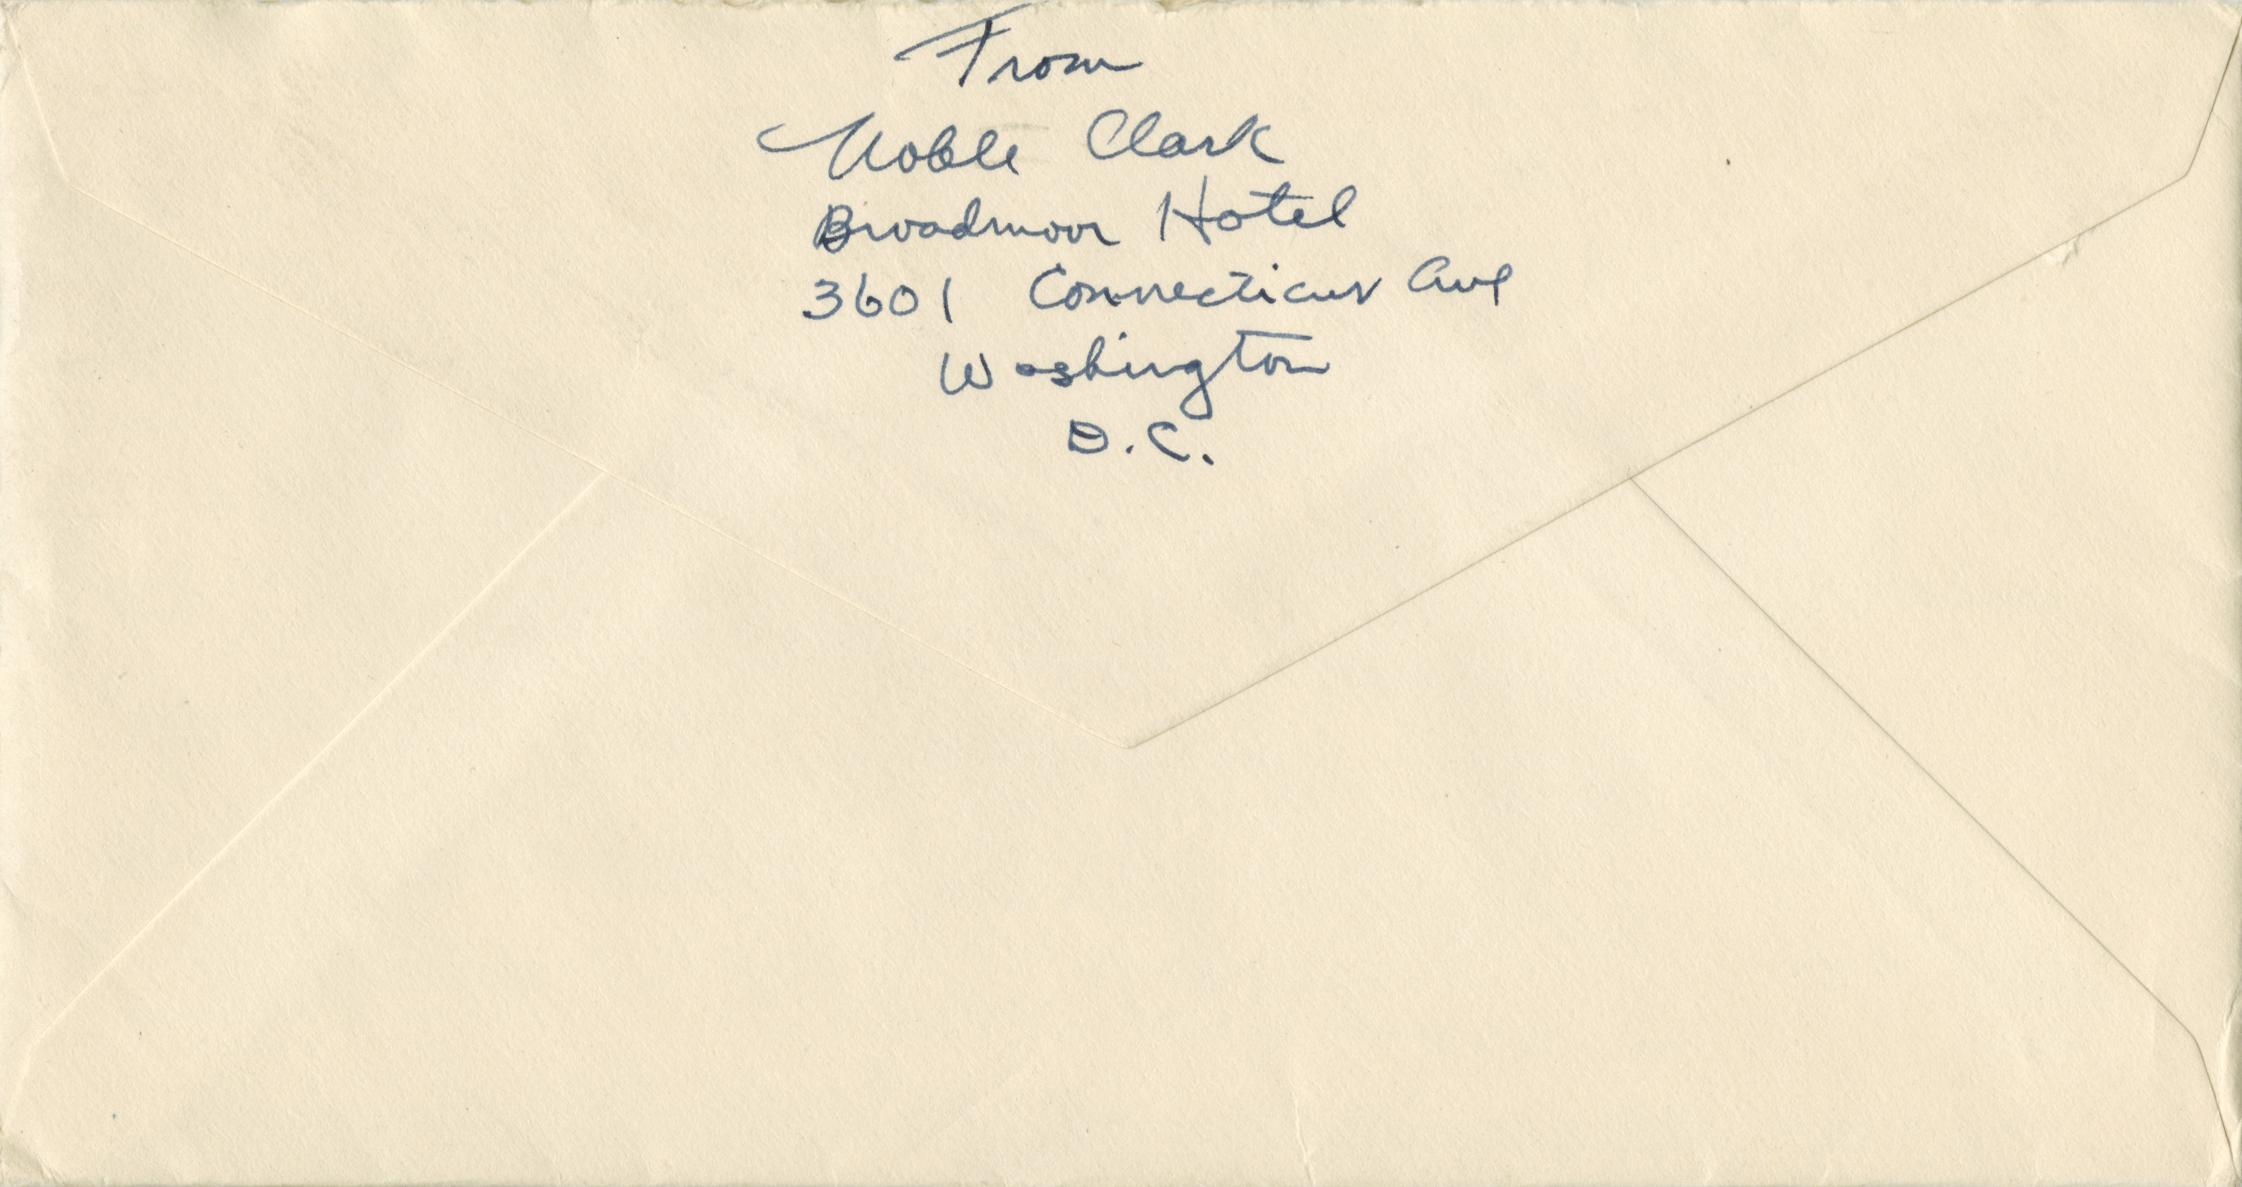 From
Noble Clark
Broadmoor Hotel
3601 Connecticut Ave
Washington
D.C.